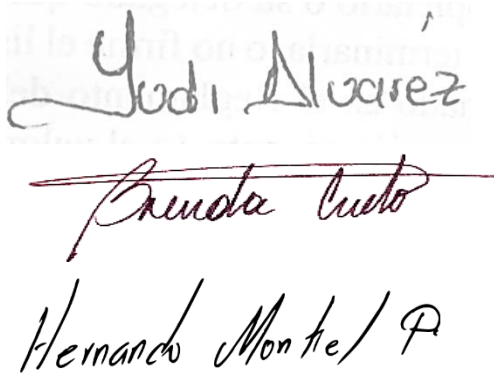 Yudi Alvarez
Brenda Cueto
Hernando Montiel P.